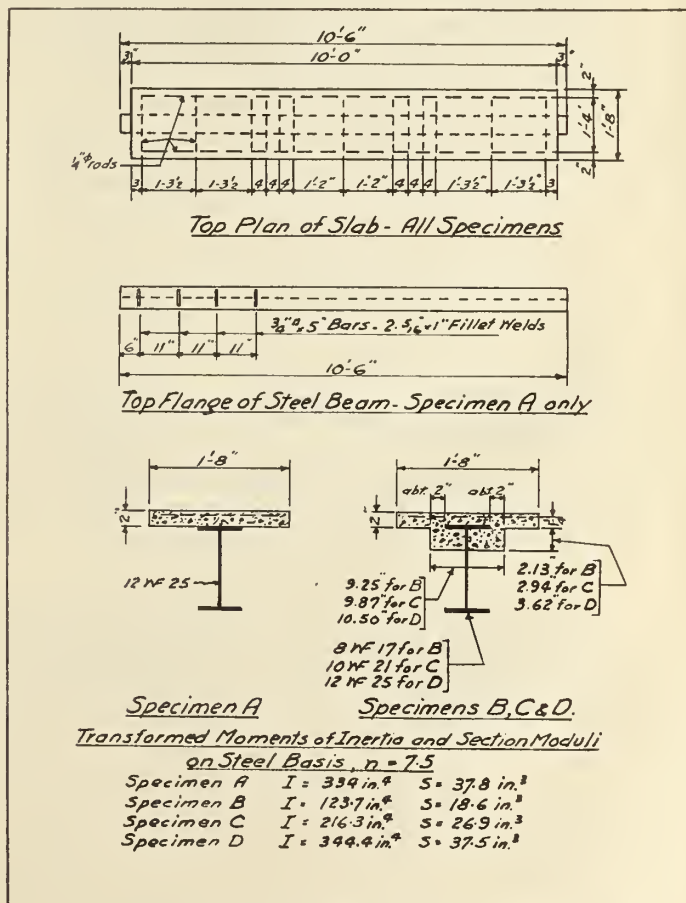 10'-6"
3" 10'-0" 3"
2"
1'-4"
1'-8"
2"
1/4"φ rods
3 1-3½" 1-3½" 4 4 4 1'-2" 1'-2" 4 4 4 1'-3½" 1'-3½" 3
Top Plan of Slab - All Specimens
3/4"ᵠ x 5" Bars - 2 5/16" x 1" Fillet Welds
6" 11" 11" 11"
10'-6"
Top Flange of Steel Beam - Specimen A only
1'-8"
2"
12 WF 25
1'-8"
abt. 2" abt 2"
2"
9.25" for B
9.87" for C
10.50" for D
2.13" for B
2.94" for C
3.62" for D
8 WF 17 for B
10 WF 21 for C
12 WF 25 for D
Specimen A
Specimens B, C & D.
Transformed Moments of Inertia and Section Moduli
on Steel Basis, n = 7.5
Specimen A I = 334 in.⁴ S = 37.8 in.³
Specimen B I = 123.7 in.⁴ S = 18.6 in.³
Specimen C I = 216.3 in.⁴ S = 26.9 in.³
Specimen D I = 344.4 in.⁴ S = 37.5 in.³